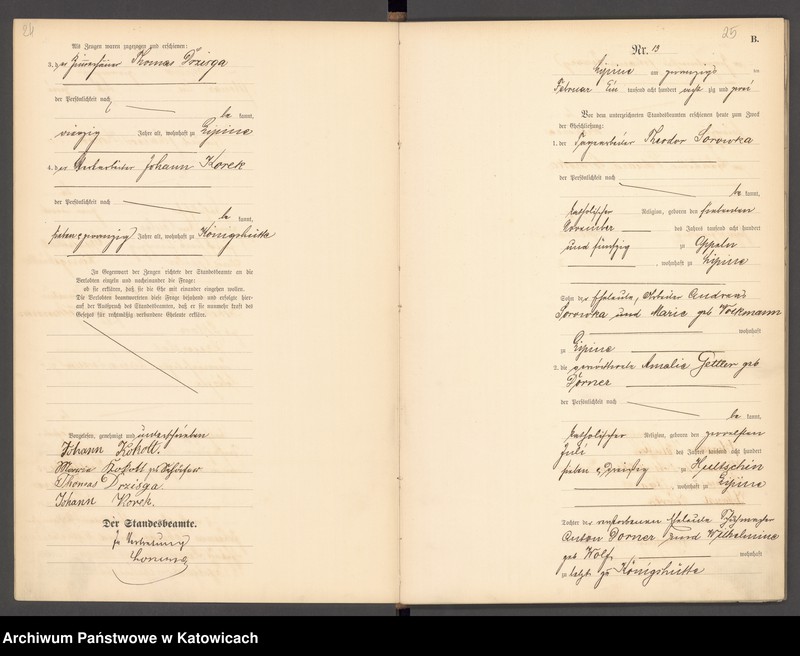 24
Als Zeugen waren zugezogen und erschienen:
3. der Zimmerhäuer Thomas Dzisga
der Persönlichkeit nach
be kannt,
vierzig Jahre alt, wohnhaft zu Lipine
4. der Erdarbeiter Johann Korek
der Persönlichkeit nach
be kannt,
sieben & zwanzig Jahre alt, wohnhaft zu Königshütte
In Gegenwart der Zeugen richtete der Standesbeamte an die
Verlobten einzeln und nacheinander die Frage:
ob sie erklären, daß sie die Ehe mit einander eingehen wollen.
Die Verlobten beantworteten diese Frage bejahend und erfolgte hier-
auf der Ausspruch des Standesbeamten, daß er sie nunmehr kraft des
Gesetzes für rechtmäßig verbundene Eheleute erkläre.
Vorgelesen, genehmigt und unterschrieben
Johann Kokott.
Maria Kokott geb Schäfer
Thomas Dzisga.
Johann Korek.
Der Standesbeamte.
In Vertretung
25
B.
Nr. 13
Lipine am zwanzigsten
Februar Ein tausend acht hundert acht zig und zwei
Vor dem unterzeichneten Standesbeamten erschienen heute zum Zweck
der Eheschließung:
1. der Tagearbeiter Theodor Sorowka
der Persönlichkeit nach
be kannt,
katholischer Religion, geboren den siebenten
November des Jahres tausend acht hundert
und fünfzig zu Oppeln
, wohnhaft zu Lipine
Sohn der Eheleute, Arbeiter Andreas
Sorowka und Marie geb Volkmann
wohnhaft
zu Lipine
2. die verwittwete Amalie Gettler geb
Dorner
der Persönlichkeit nach
be kannt,
katholischer Religion, geboren den zwoelften
Juli des Jahres tausend acht hundert
sieben & dreissig zu Hultschin
, wohnhaft zu Lipine
Tochter der verstorbenen Eheleute Schuhmacher
Anton Dorner und Wilhelmine
geb. Wolf wohnhaft
zu letzt zu Königshütte
Archiwum Państwowe w Katowicach